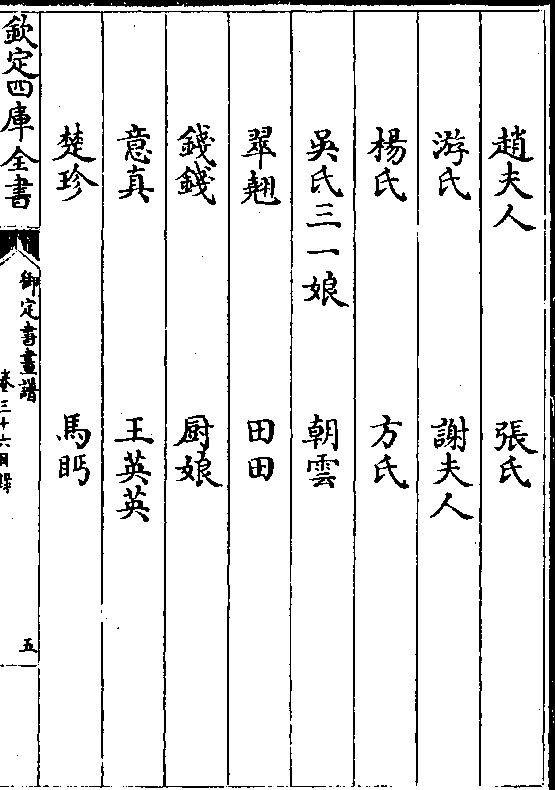 趙夫人　張氏
游氏　謝夫人
楊氏　方氏
吳氏三一娘　朝雲
翠翹　田田
錢錢　厨娘
意真　王英英
楚珍　馬眄
欽定四庫全書
御定書畫譜
卷三十六目錄
五